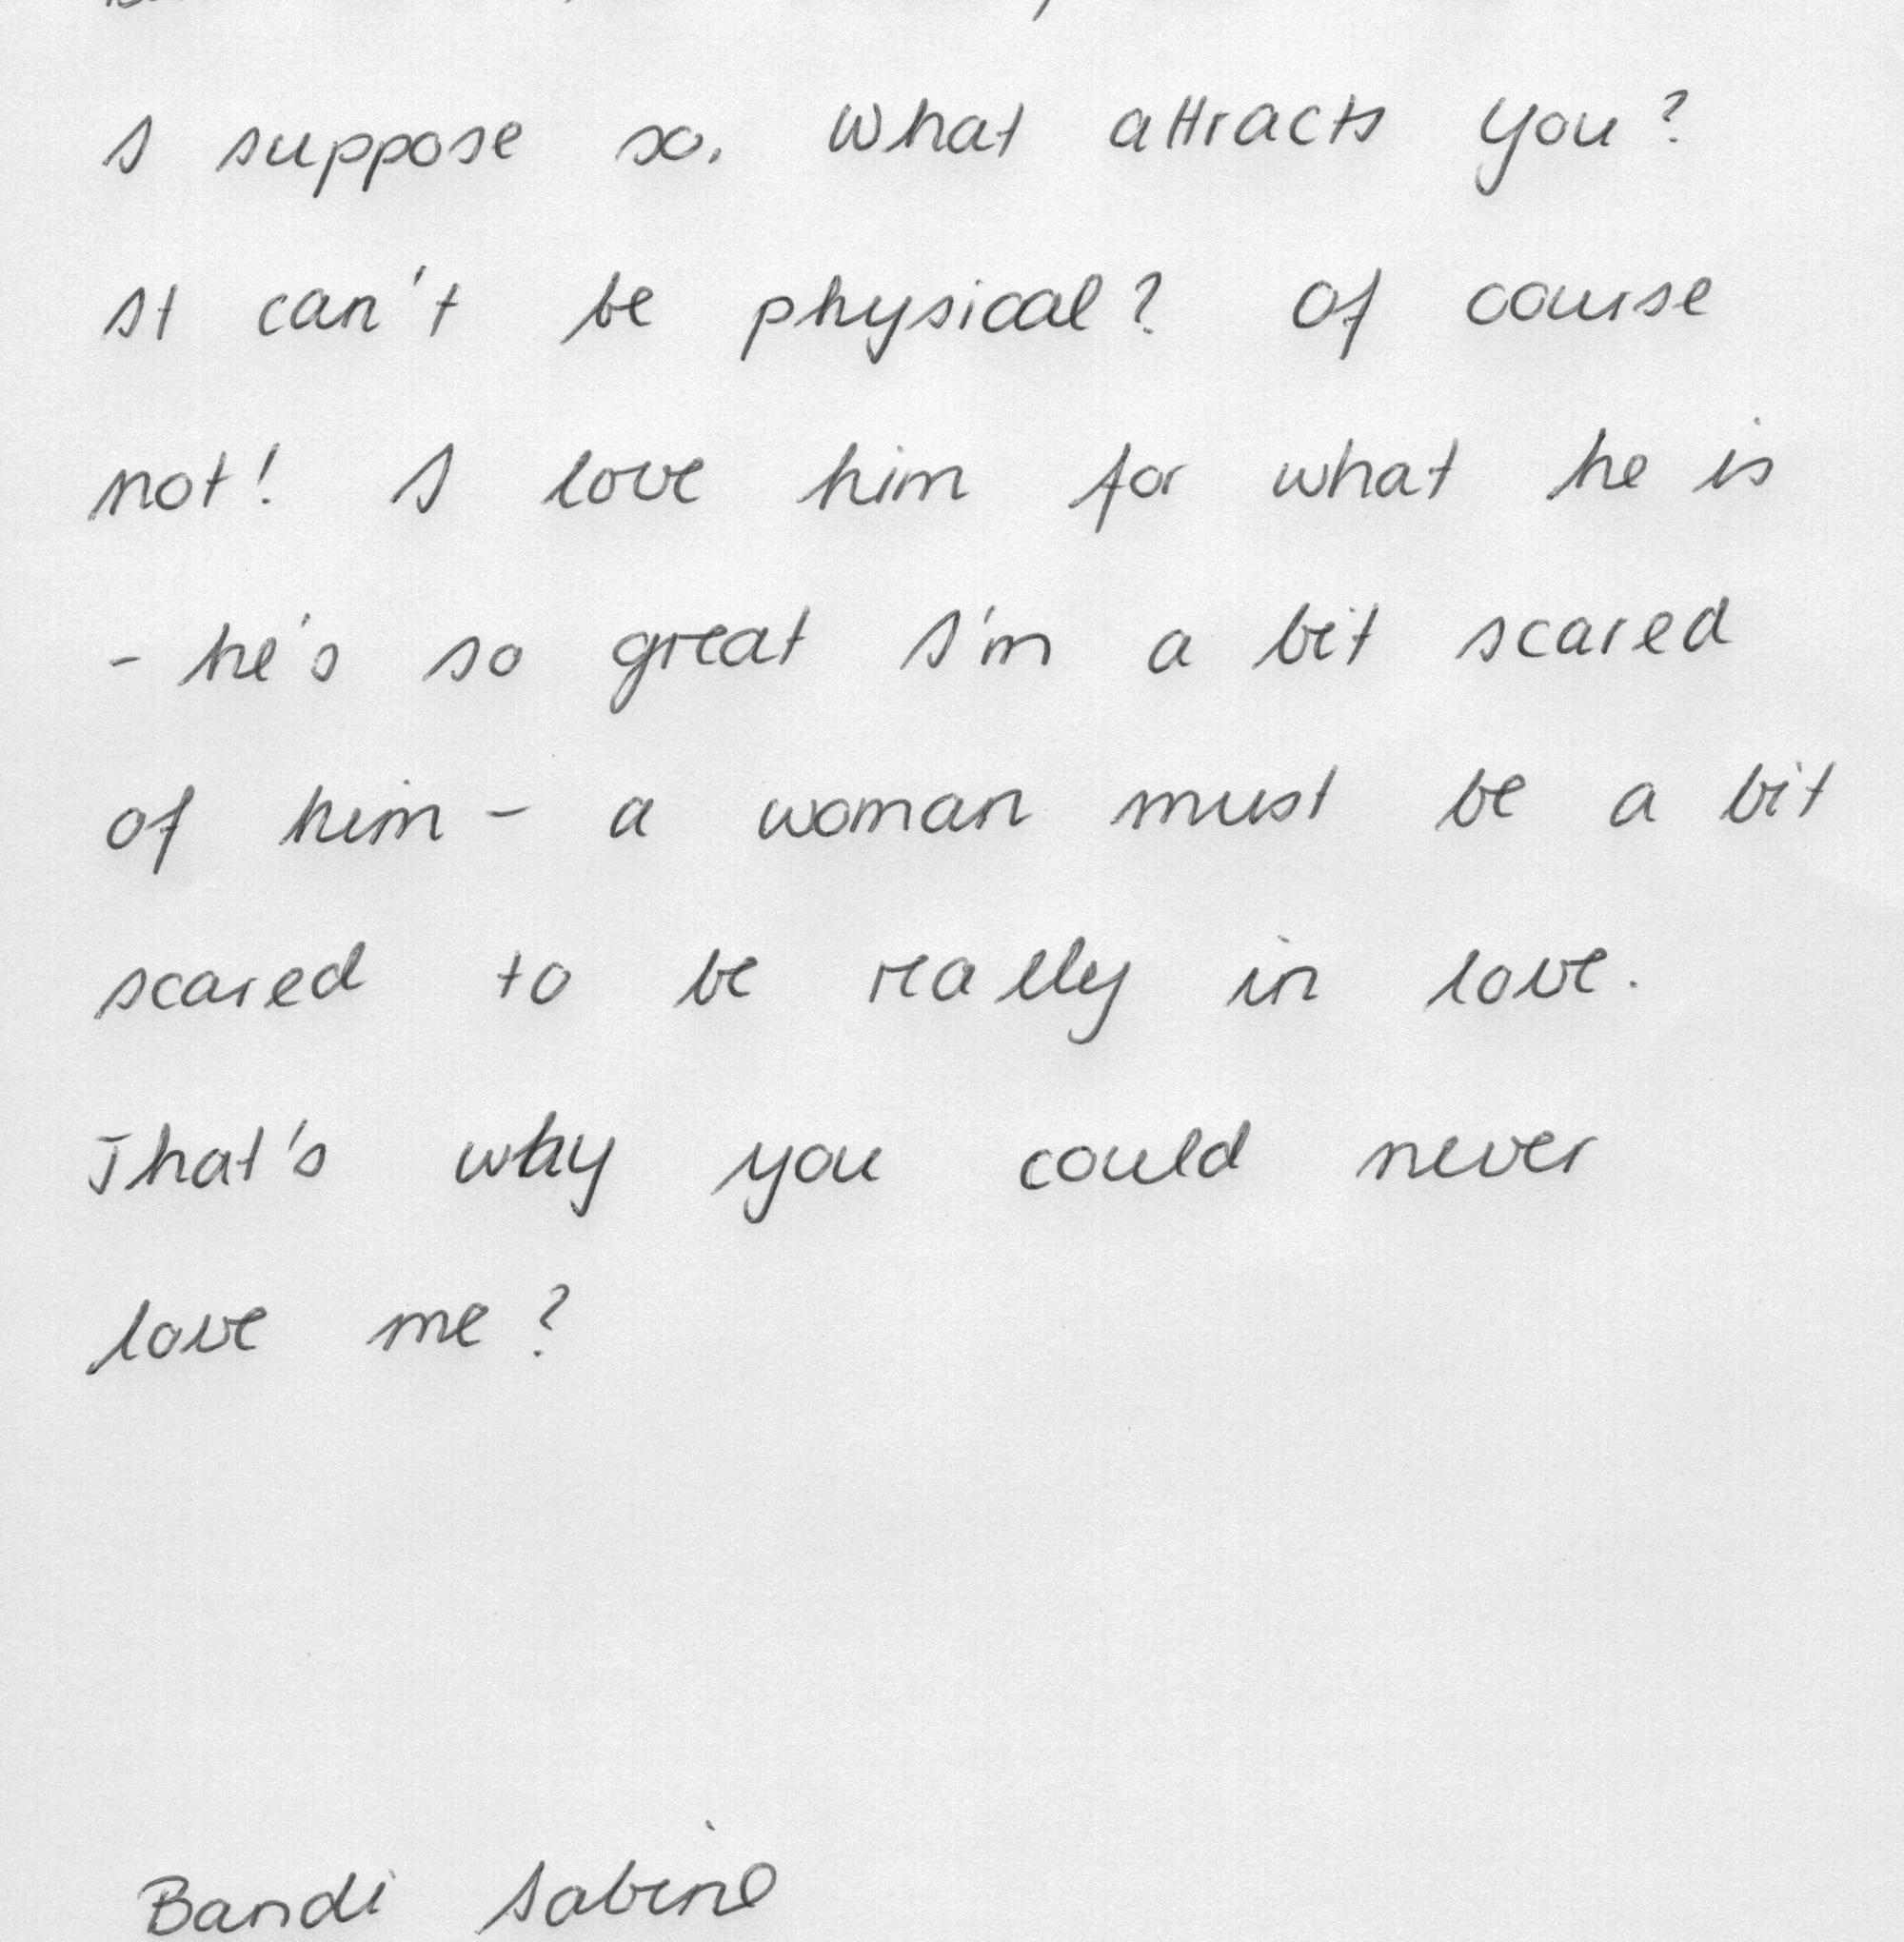 I suppose so. What attracts you?
It can't be physical? Of course
not! I love him for what he is
- he's so great I'm a bit scared
of him - a woman must be a bit
scared to be really in love.
That's why you could never
love me?
Bandi Sabine